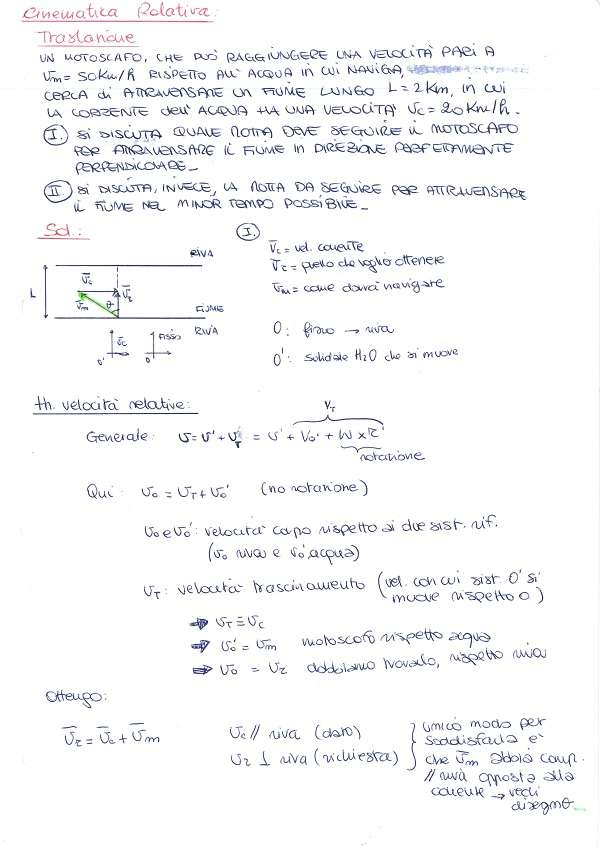 Cinematica Relativa:
Traslazione
UN MOTOSCAFO, CHE PUÒ RAGGIUNGERE UNA VELOCITÀ PARI A
Vm = 50 Km/h RISPETTO ALL' ACQUA IN CUI NAVIGA,
CERCA di ATTRAVERSARE UN FIUME LUNGO L = 2 Km, IN CUI
LA CORRENTE dell' ACQUA HA UNA VELOCITÀ Vc = 20 Km/h.
I. SI DISCUTA QUALE ROTTA DEVE SEGUIRE IL MOTOSCAFO
PER ATTRAVERSARE IL FIUME IN DIREZIONE PERFETTAMENTE
PERPENDICOLARE_
II SI DISCUTA, INVECE, LA ROTTA DA SEGUIRE PER ATTRAVERSARE
IL FIUME NEL MINOR TEMPO POSSIBILE_
Sol.:
I.
V̄c = vel. corrente
V̄r = quello che voglio ottenere
V̄m = come dovrei navigare
O: fisso → riva
O': solidale H2O che si muove
RIVA
L
V̄c
V̄m
θ
V̄r
FIUME
RIVA
V̄c
O'
FISSO
O
th. velocità relative:
Generale: v = v' + vT = v' + Vo' + W × r'
VT
rotazione
Qui: vo = vT + vo' (no rotazione)
vo e vo': velocità corpo rispetto ai due sist. rif.
(vo riva e vo' acqua)
vT: velocità trascinamento (vel. con cui sist. O' si
muove rispetto O)
⇒ vT ≡ vc
⇒ vo' = vm motoscafo rispetto acqua
⇒ vo = vr dobbiamo trovarlo, rispetto riva
Ottengo:
v̄r = v̄c + v̄m
vc // riva (dato)
vr ⊥ riva (richiesta)
unico modo per
soddisfarla è
che v̄m abbia comp.
// riva opposta alla
corrente → vedi
disegno